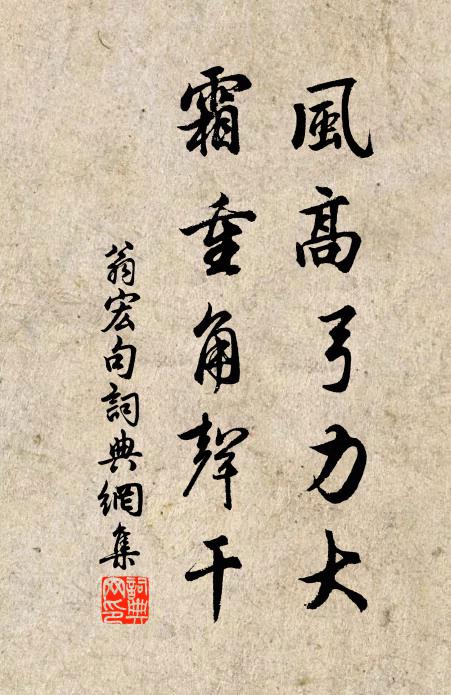 風高弓力大
霜重角聲干
翁宏句詞典網集
詞典網印